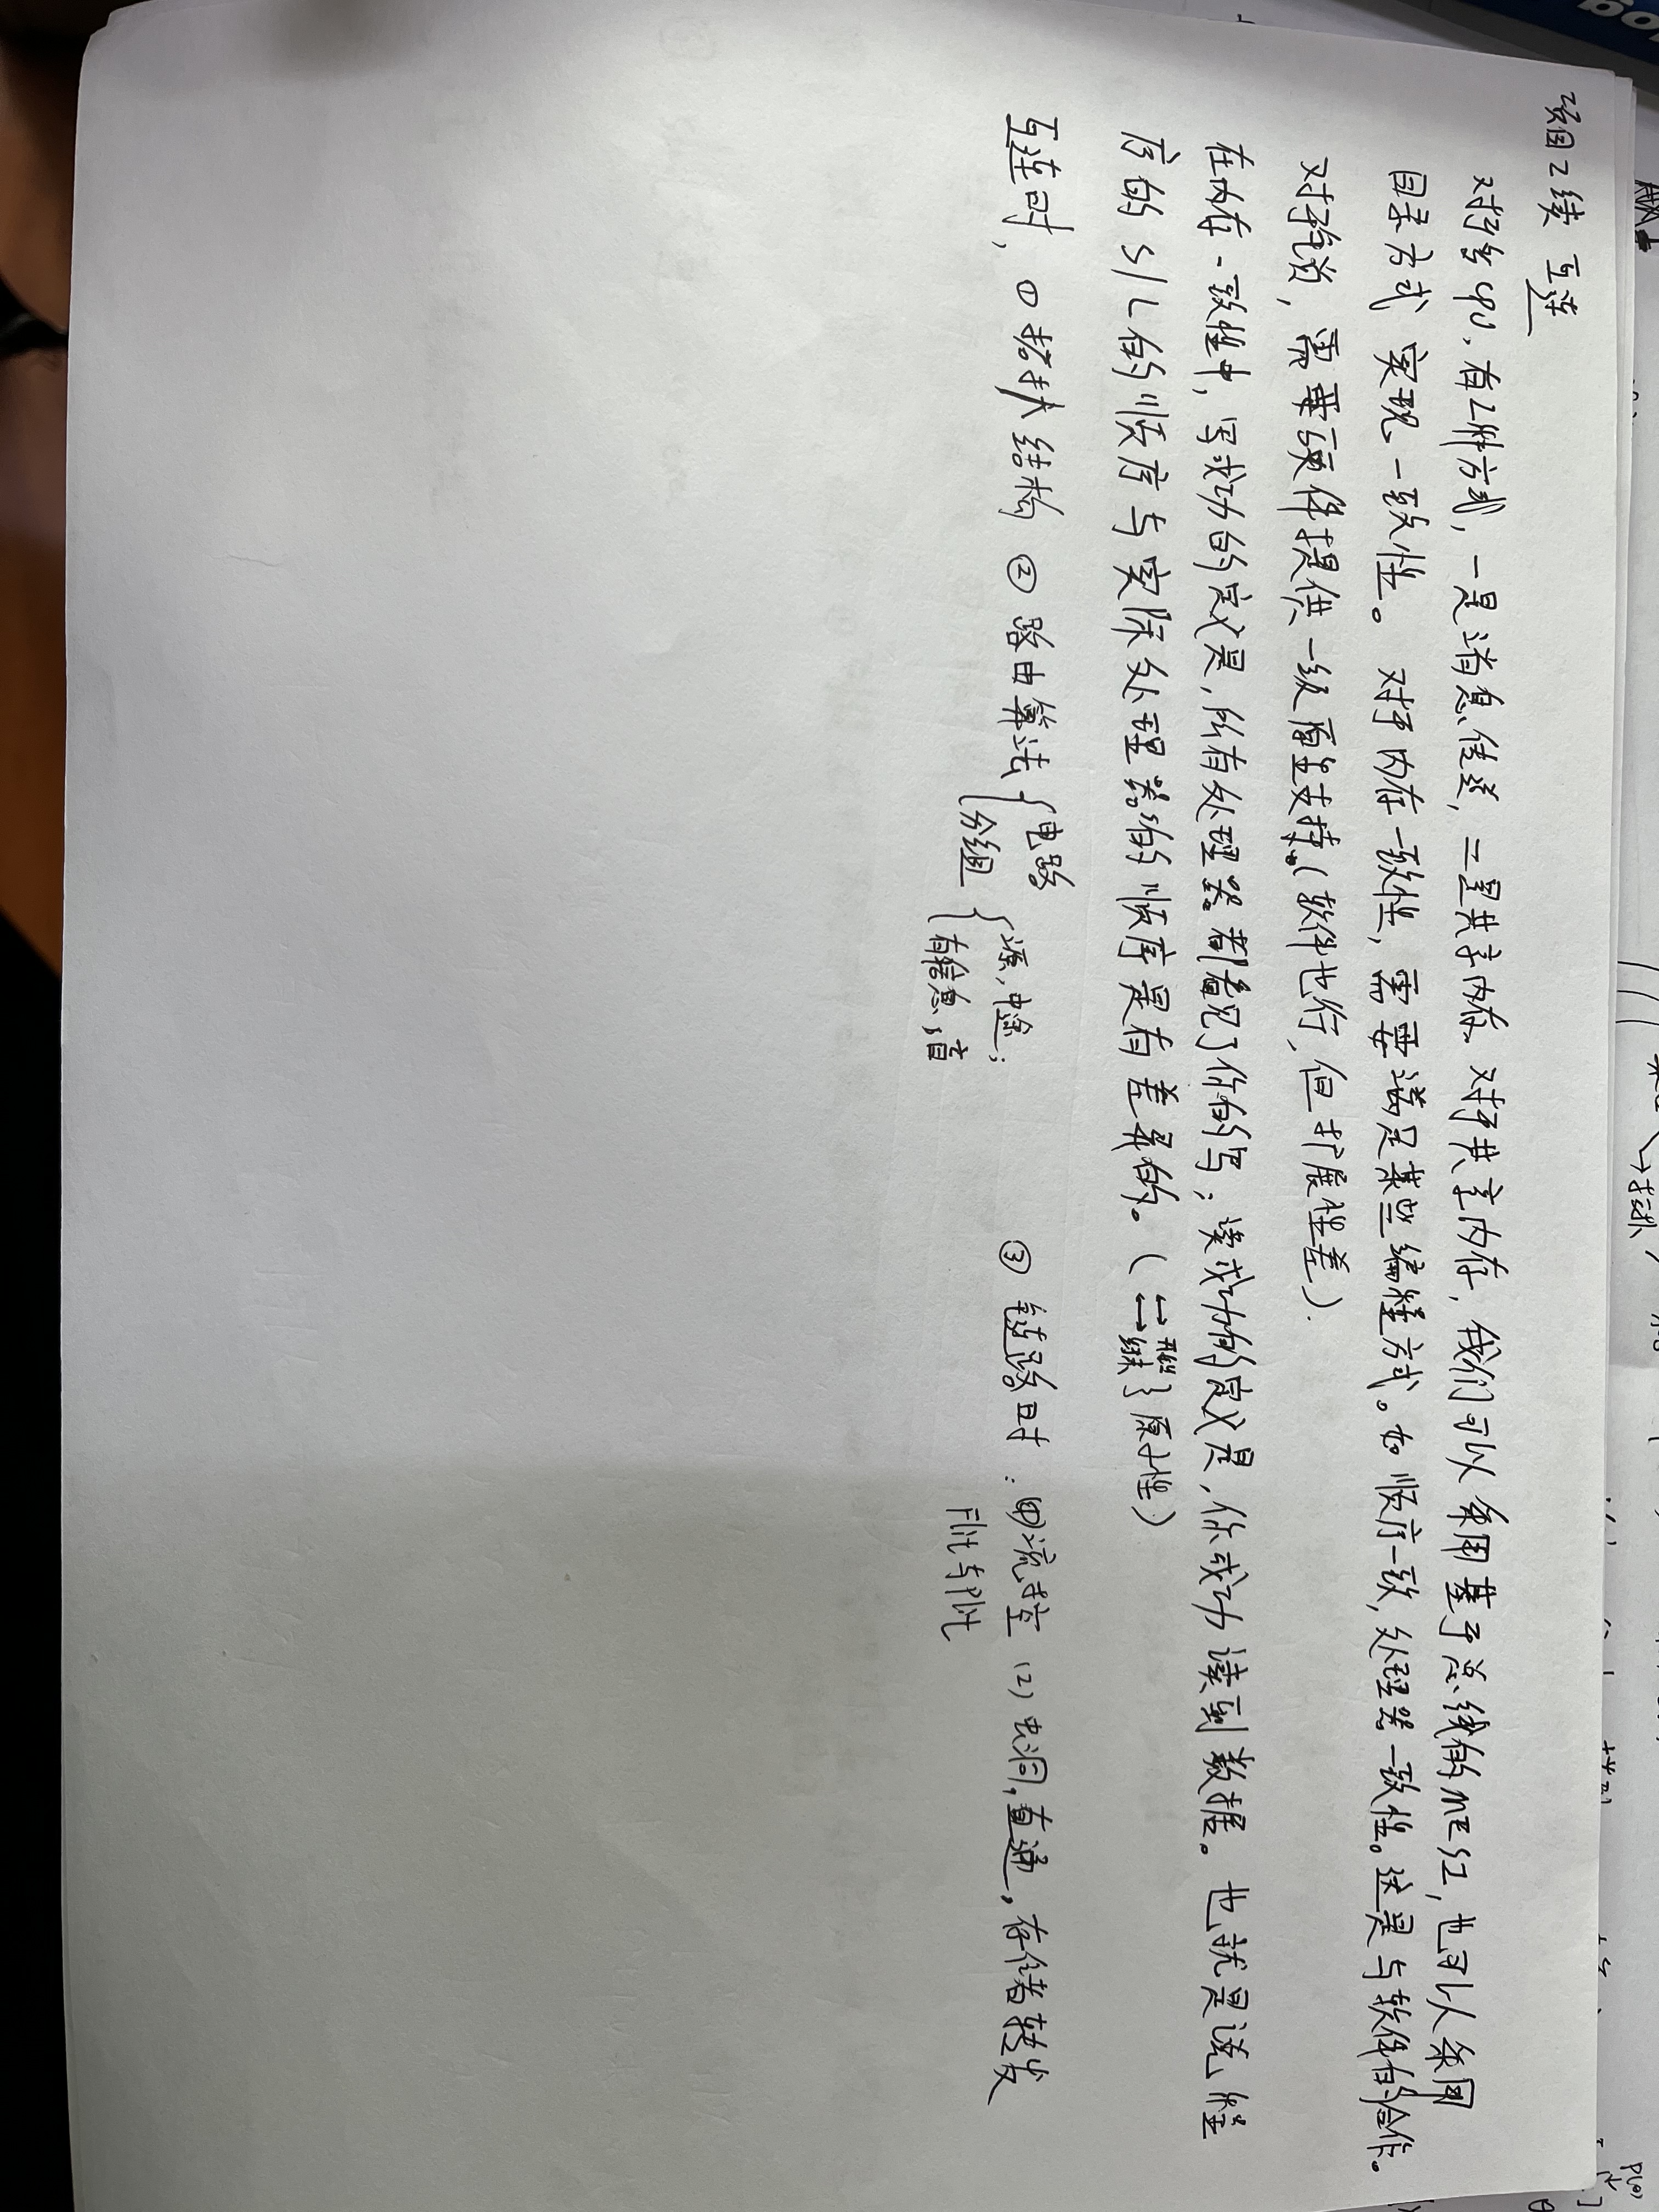 项目2续 互连
对于多CPU,有2种方式,一是消息传送,二是共享内存。对于共享内存,我们可以采用基于总线的MESI,也可以采用
目录方式 实现一致性。对于内存一致性,需要满足某些编程方式。如顺序一致,处理器一致性。这是与软件的合作。
对于锁,需要硬件提供一级原生支持。(软件也行,但扩展性差).
在内存一致性中,写成功的定义是,所有处理器都看见了你的写;读成功的定义是,你成功读到数据。也就是说程
序的S/L的顺序与实际处理器的顺序是有差异的。(↔ 原子性)
互连时, ① 拓扑结构 ② 路由算法 { 电路 分组 { 源,中途; 有信息,盲
③ 链路时: (1)流控 (2) 虫洞,直通,存储转发
Flit与Phit